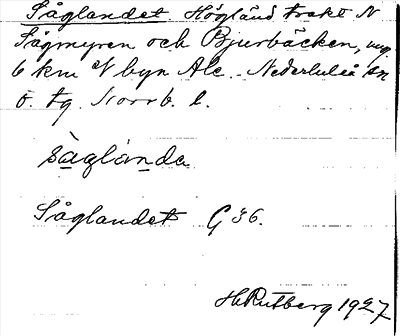 Såglandet. Högländ trakt N
Sågmyren och Bjurbäcken, ung.
6 km N byn Ale. Nederluleå sn
ö. tg. Norrb. l.
såglanda
Såglandet G 36.
H. Rutberg 1927